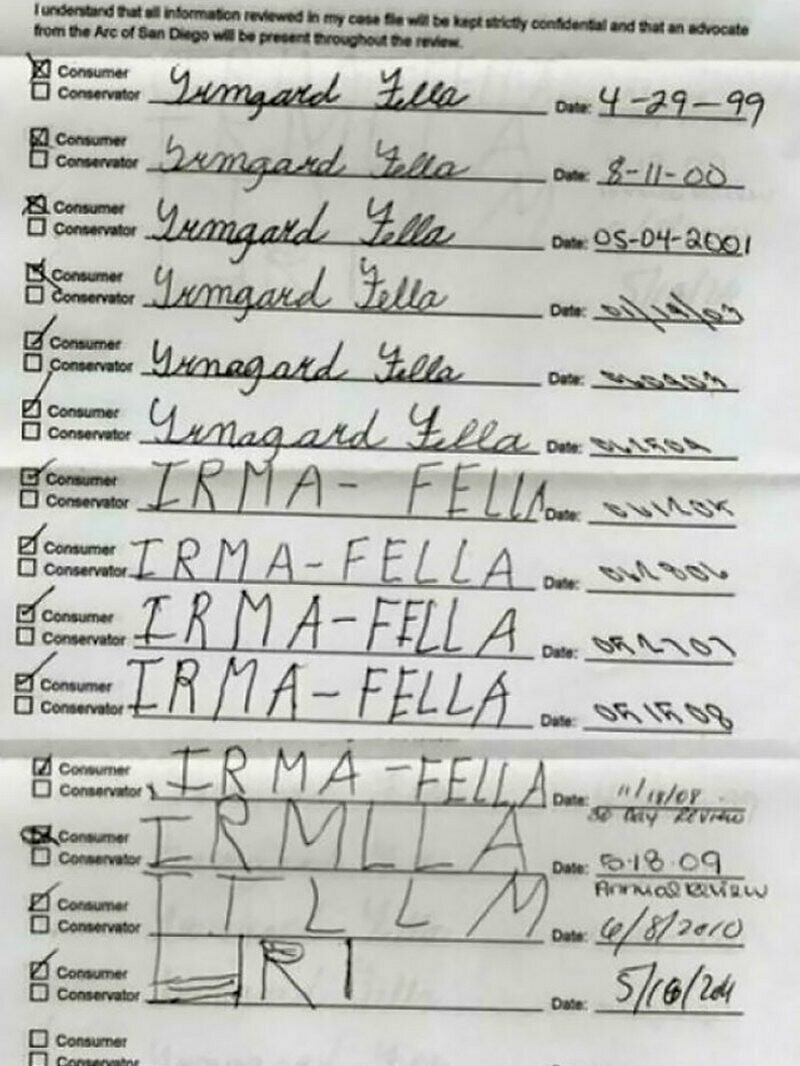 I understand that all information reviewed in my case file will be kept strictly confidential and that an advocate
from the Arc of San Diego will be present throughout the review.
Consumer
Conservator Yrmgard Fella Date: 4-29-99
Consumer
Conservator Yrmgard Fella Date: 8-11-00
Consumer
Conservator Yrmgard Fella Date: 05-04-2001
Consumer
Conservator Yrmgard Fella Date: 01/19/03
Consumer
Conservator Yrnagard Fella Date:
Consumer
Conservator Yrnagard Fella Date:
Consumer
Conservator IRMA- FELLA Date:
Consumer
Conservator IRMA-FELLA Date:
Consumer
Conservator IRMA-FELLA Date:
Consumer
Conservator IRMA-FELLA Date:
Consumer
Conservator IRMA-FELLA Date: 11/18/08
30 Day Review
Consumer
Conservator IRMLLA Date: 5.18.09
Annual Review
Consumer
Conservator ITLLM Date: 6/8/2010
Consumer
Conservator RI Date: 5/16/2011
Consumer
Conservator Date: